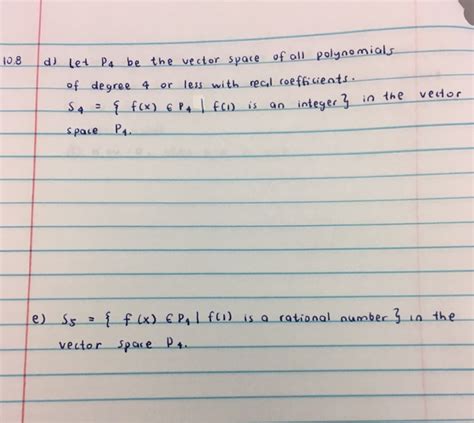 10.8 d) Let P4 be the vector space of all polynomials
of degree 4 or less with real coefficients.
S4 = { f(x) ∈ P4 | f(1) is an integer } in the vector
space P4.
e) S5 = { f(x) ∈ P4 | f(1) is a rational number } in the
vector space P4.